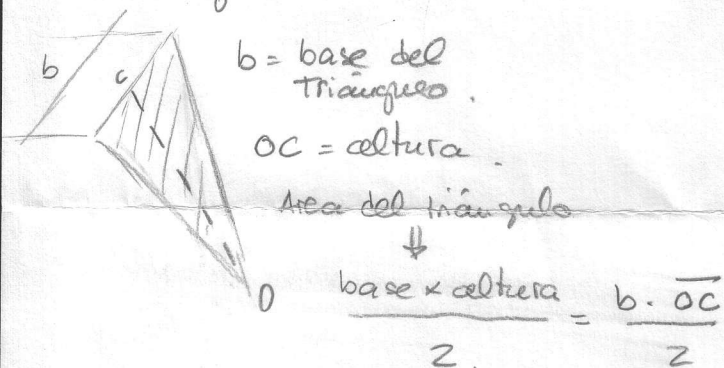 b
c
O
b = base del
Triángulo.
OC = altura.
Area del triángulo
⇓
base x altura / 2. = b. OC / 2